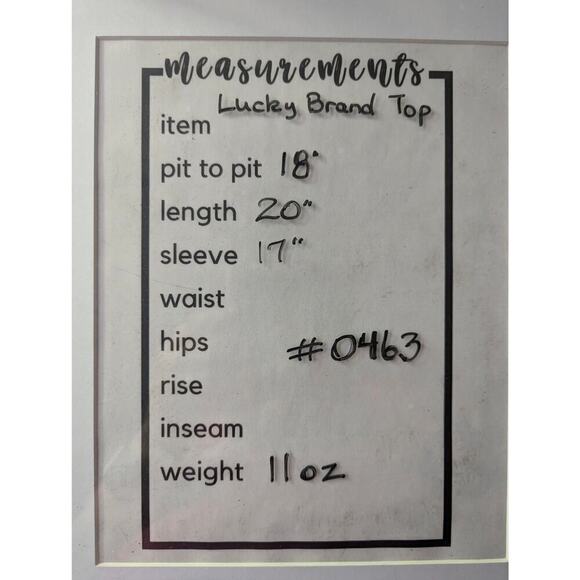 measurements
Lucky Brand Top
item
pit to pit 18"
length 20"
sleeve 17"
waist
hips #0463
rise
inseam
weight 11 oz